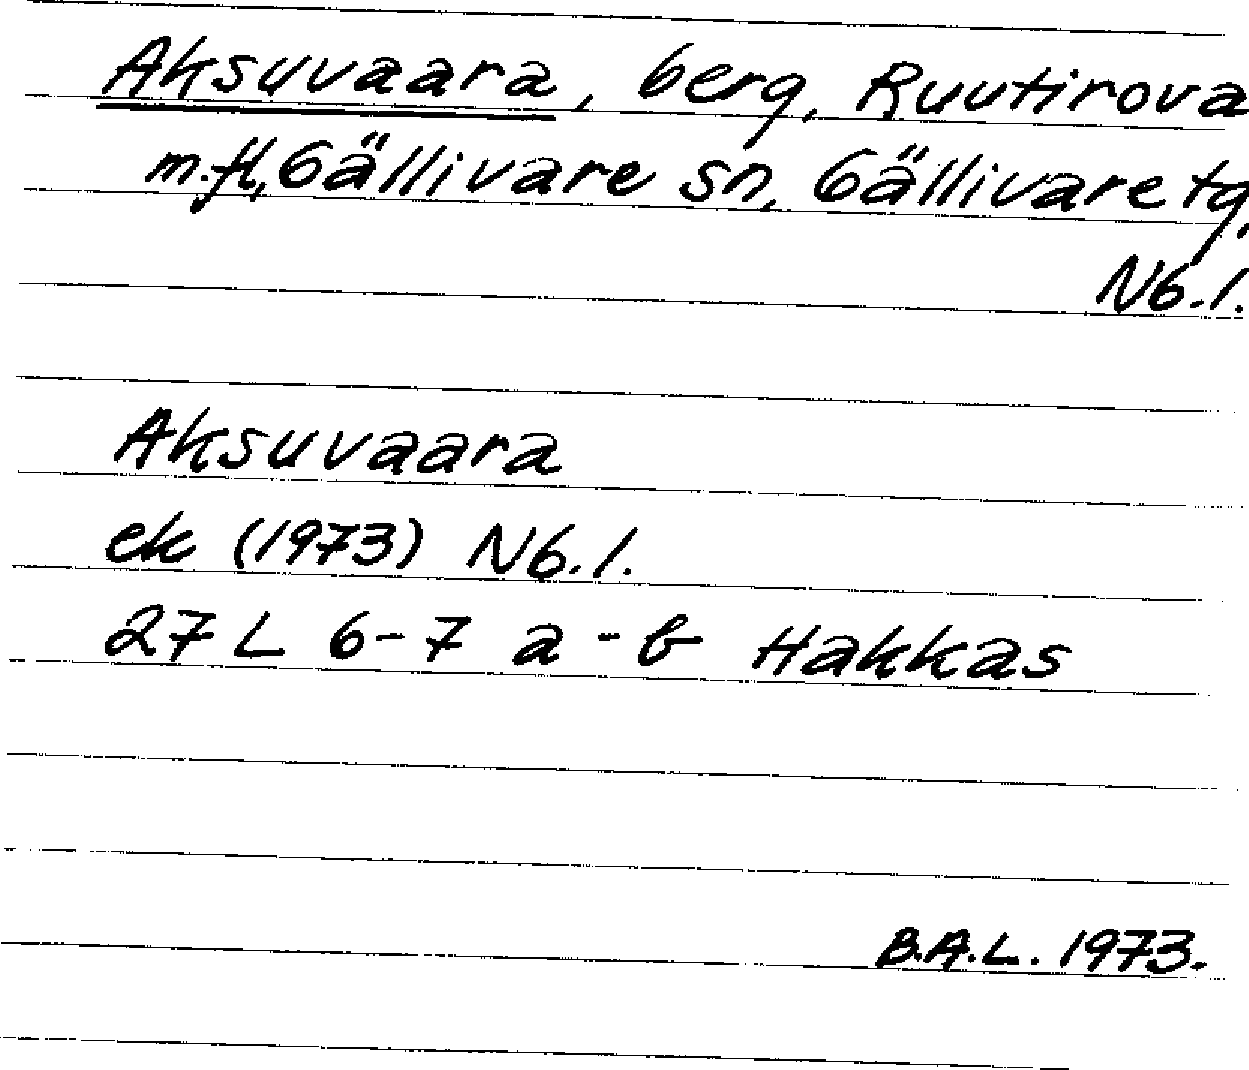 Aksuvaara, berg, Ruutirova
m.fl, Gällivare sn, Gällivare tg,
Nb.l.
Aksuvaara
ek (1973) Nb.l.
27 L 6-7 a-b Hakkas
B.A.L. 1973.